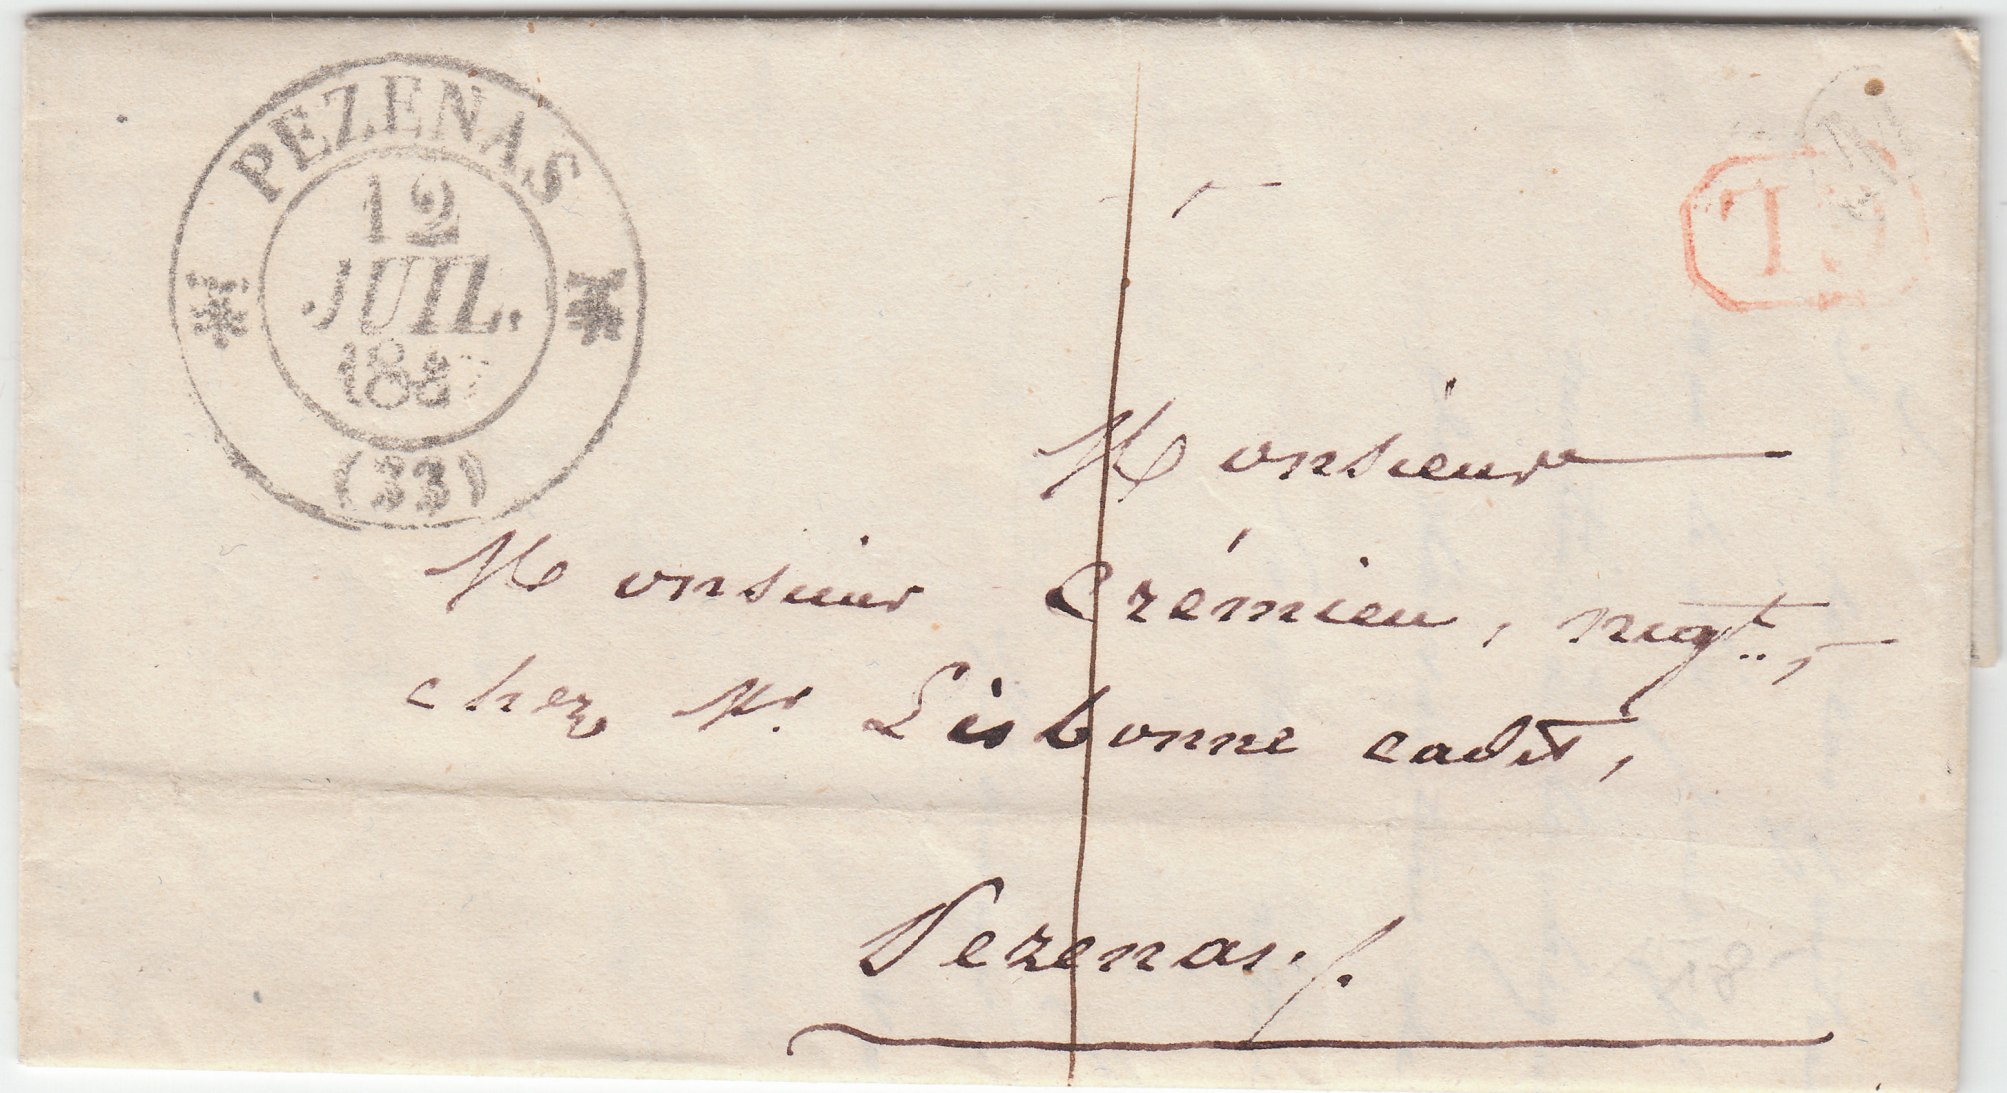 PEZENAS
12
JUIL.
1847
(33)
CL
Monsieur
Monsieur Crémieu, negt.,
chez Mr. Lisbonne cadet,
Pezenas./.